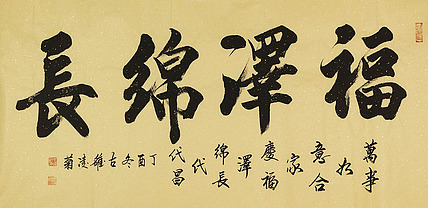 福澤綿長
萬事如
意合
家
慶福
澤
綿長
代
代昌
丁酉冬古雒凌菊